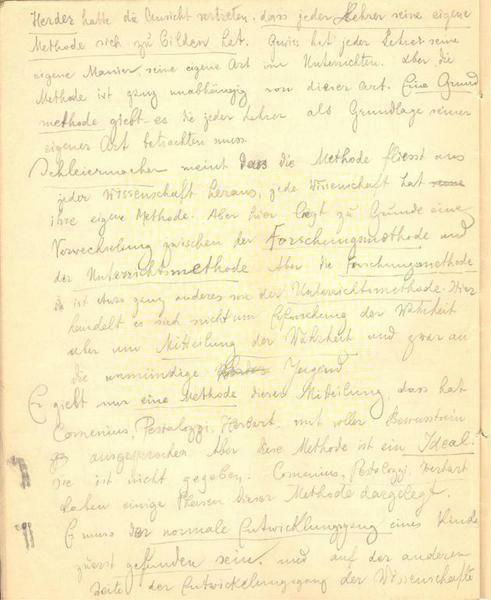 Herder hatte die Ansicht vertreten, dass jeder Lehrer seine eigene
Methode sich zu bilden hat. Gewiss hat jeder Lehrer seine
eigene Manier, seine eigene Art im Unterrichten. Aber die
Methode ist ganz unabhängig von dieser Art. Eine Grund
methode giebt es die jeder Lehrer als Grundlage seiner
eigener Art betrachten muss.
Schleiermacher meint dass die Methode fliesst aus
jeder Wissenschaft heraus, jede Wissenschaft hat
ihre eigene Methode. Aber hier liegt zu Grunde eine
Verwechselung zwischen der Forschungsmethode und
der Unterrichtsmethode. Aber die Forschungsmethode
ist etwas ganz anderes wie der Unterrichtsmethode. Hier
handelt es sich nicht um Erforschung der Wahrheit
aber um Mitteilung der Wahrheit und zwar an
die unmündige Jugend
Es giebt nur eine Methode dieser Mitteilung, dass hat
Comenius, Pestalozzi, Herbart, mit voller Bewusstsein
ausgesprochen. Aber diese Methode ist ein Ideal.
sie ist nicht gegeben. Comenius, Pestalozzi, Herbart
haben einige Phasen dieser Methode dargelegt.
Es muss der normale Entwicklungsgang eines Kindes
zuerst gefunden sein, und auf der anderen
Seite der Entwickelungsgang der Wissenschafte